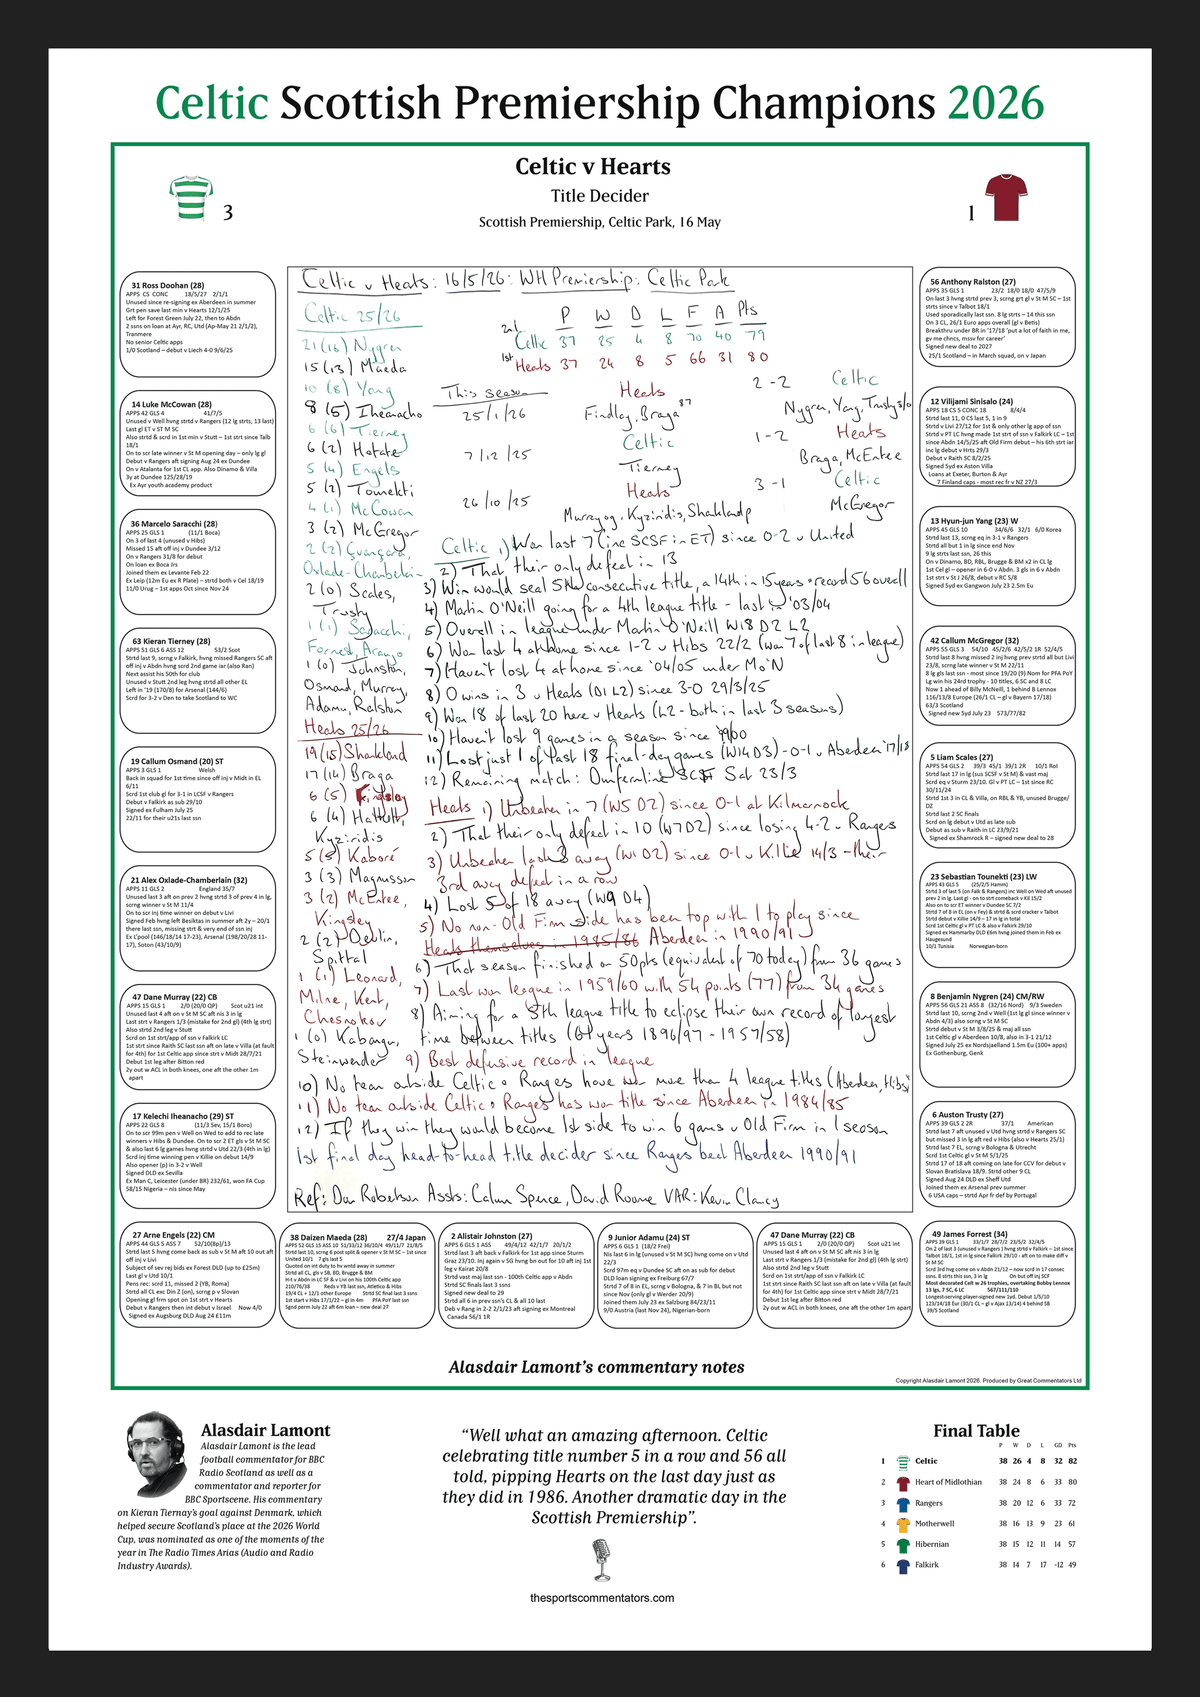 Celtic Scottish Premiership Champions 2026
Celtic v Hearts
Title Decider
Scottish Premiership, Celtic Park, 16 May
3
1
31 Ross Doohan (28)
APPS CS CONC 18/5/27 2/1/1
Unused since re-signing ex Aberdeen in summer
Grt pen save last min v Hearts 12/1/25
Left for Forest Green July 22, then to Abdn
2 ssns on loan at Ayr, RC, Utd (Ap-May 21 2/1/2),
Tranmere
No senior Celtic apps
1/0 Scotland – debut v Liech 4-0 9/6/25
14 Luke McCowan (28)
APPS 42 GLS 4 41/7/5
Unused v Well hvng strtd v Rangers (12 lg strts, 13 last)
Last gl ET v ST M SC
Also strtd & scrd in 1st min v Stutt – 1st strt since Talb
18/1
On to scr late winner v St M opening day – only lg gl
Debut v Rangers aft signing Aug 24 ex Dundee
On v Atalanta for 1st CL app. Also Dinamo & Villa
3y at Dundee 125/28/19
Ex Ayr youth academy product
36 Marcelo Saracchi (28)
APPS 25 GLS 1 (11/1 Boca)
On 3 of last 4 (unused v Hibs)
Missed 15 aft off inj v Dundee 3/12
On v Rangers 31/8 for debut
On loan ex Boca Jrs
Joined them ex Levante Feb 22
Ex Leip (12m Eu ex R Plate) – strtd both v Cel 18/19
11/0 Urug – 1st apps Oct since Nov 24
63 Kieran Tierney (28)
APPS 51 GLS 6 ASS 12 53/2 Scot
Strtd last 9, scrng v Falkirk, hvng missed Rangers SC aft
off inj v Abdn hvng scrd 2nd game iar (also Ran)
Next assist his 50th for club
Unused v Stutt 2nd leg hvng strtd all other EL
Left in '19 (170/8) for Arsenal (144/6)
Scrd for 3-2 v Den to take Scotland to WC
19 Callum Osmand (20) ST
APPS 3 GLS 1 Welsh
Back in squad for 1st time since off inj v Midt in EL
6/11
Scrd 1st club gl for 3-1 in LCSF v Rangers
Debut v Falkirk as sub 29/10
Signed ex Fulham July 25
22/11 for their u21s last ssn
21 Alex Oxlade-Chamberlain (32)
APPS 11 GLS 2 England 35/7
Unused last 3 aft on prev 2 hvng strtd 3 of prev 4 in lg,
scrng winner v St M 11/4
On to scr inj time winner on debut v Livi
Signed Feb hvng left Besiktas in summer aft 2y – 20/1
there last ssn, missing strt & very end of ssn inj
Ex L'pool (146/18/14 17-23), Arsenal (198/20/28 11-
17), Soton (43/10/9)
47 Dane Murray (22) CB
APPS 15 GLS 1 2/0 (20/0 QP) Scot u21 int
Unused last 4 aft on v St M SC aft nis 3 in lg
Last strt v Rangers 1/3 (mistake for 2nd gl) (4th lg strt)
Also strtd 2nd leg v Stutt
Scrd on 1st strt/app of ssn v Falkirk LC
1st strt since Raith SC last ssn aft on late v Villa (at fault
for 4th) for 1st Celtic app since strt v Midt 28/7/21
Debut 1st leg after Bitton red
2y out w ACL in both knees, one aft the other 1m
apart
17 Kelechi Iheanacho (29) ST
APPS 22 GLS 8 (11/3 Sev, 15/1 Boro)
On to scr 99m pen v Well on Wed to add to rec late
winners v Hibs & Dundee. On to scr 2 ET gls v St M SC
& also last 6 lg games hvng strtd v Utd 22/3 (4th in lg)
Scrd inj time winning pen v Killie on debut 14/9
Also opener (p) in 3-2 v Well
Signed DLD ex Sevilla
Ex Man C, Leicester (under BR) 232/61, won FA Cup
58/15 Nigeria – nis since May
27 Arne Engels (22) CM
APPS 44 GLS 5 ASS 7 52/10(8p)/13
Strtd last 5 hvng come back as sub v St M aft 10 out aft
off inj v Livi
Subject of sev rej bids ex Forest DLD (up to £25m)
Last gl v Utd 10/1
Pens rec: scrd 11, missed 2 (YB, Roma)
Strtd all CL exc Din Z (on), scrng p v Slovan
Opening gl frm spot on 1st strt v Hearts
Debut v Rangers then int debut v Israel Now 4/0
Signed ex Augsburg DLD Aug 24 £11m
Celtic v Hearts: 16/5/26: WH Premiership: Celtic Park
Celtic 25/26
21 (16) Nygren
15 (13) Maeda
10 (8) Yang
8 (5) Iheanacho
6 (6) Tierney
6 (2) Hatate
5 (4) Engels
5 (2) Tounekti
4 (1) McCowan
3 (2) McGregor
2 (2) Çvançara,
Oxlade-Chamberlain
2 (0) Scales,
Trusty
1 (1) Saracchi,
Forrest, Araujo
1 (0) Johnston,
Osmand, Murray,
Adamu, Ralston
Hearts 25/26
19 (15) Shankland
17 (14) Braga
6 (5) Findlay
6 (4) Halkett,
Kyziridis
5 (5) Kaboré
3 (3) Magnusson
3 (2) McEntee,
Kingsley
2 (2) Devlin,
Spittal
1 (1) Leonard,
Milne, Kent,
Chesnokov
1 (0) Kabangu,
Steinwender
P W D L F A Pts
2nd Celtic 37 25 4 8 70 40 79
1st Hearts 37 24 8 5 66 31 80
This season
25/1/26 Hearts 2-2 Celtic
Findlay, Braga 87 Nygren, Yang, Trusty s/o
7/12/25 Celtic 1-2 Hearts
Tierney Braga, McEntee
26/10/25 Hearts 3-1 Celtic
Murray og, Kyziridis, Shankland p McGregor
Celtic 1) Won last 7 (inc SCSF in ET) since 0-2 v United
2) That their only defeat in 13
3) Win would seal 5th consecutive title, a 14th in 15 years + record 56 overall
4) Martin O'Neill going for a 4th league title - last in '03/04
5) Overall in league under Martin O'Neill W18 D2 L2
6) Won last 4 at home since 1-2 v Hibs 22/2 (won 7 of last 8 in league)
7) Haven't lost 4 at home since '04/05 under Mo'N
8) 0 wins in 3 v Hearts (D1 L2) since 3-0 29/3/25
9) Won 18 of last 20 here v Hearts (L2 - both in last 3 seasons)
10) Haven't lost 9 games in a season since '99/00
11) Lost just 1 of past 18 final-day games (W14 D3) - 0-1 v Aberdeen '17/18
12) Remaining match: Dunfermline SCF Sat 23/3
Hearts 1) Unbeaten in 7 (W5 D2) since 0-1 at Kilmarnock
2) That their only defeat in 10 (W7 D2) since losing 4-2 v Rangers
3) Unbeaten last 3 away (W1 D2) since 0-1 v Killie 14/3 - their
3rd away defeat in a row
4) Lost 5 of 18 away (W9 D4)
5) No non-Old Firm side has been top with 1 to play since
Hearts themselves in 1985/86 Aberdeen in 1990/91
6) That season finished on 50pts (equivalent of 70 today) from 36 games
7) Last won league in 1959/60 with 54 points (77) from 34 games
8) Aiming for a 5th league title to eclipse their own record of longest
time between titles (61 years 1896/97 - 1957/58)
9) Best defensive record in league
10) No team outside Celtic + Rangers have won more than 4 league titles (Aberdeen, Hibs)
11) No team outside Celtic + Rangers has won title since Aberdeen in 1984/85
12) If they win they would become 1st side to win 6 games v Old Firm in 1 season
1st final day head-to-head title decider since Rangers beat Aberdeen 1990/91
Ref: Don Robertson Assts: Calum Spence, David Roome VAR: Kevin Clancy
38 Daizen Maeda (28) 27/4 Japan
APPS 52 GLS 15 ASS 10 51/33/12 36/10/4 49/11/7 21/8/5
Strtd last 10, scrng 6 post split & opener v St M SC – 1st since
United 10/1 7 gls last 5
Quoted on int duty to hv wntd away in summer
Strtd all CL, gls v SB, BD, Brugge & BM
H-t v Abdn in LC SF & v Livi on his 100th Celtic app
210/76/38 Reds v YB last ssn, Atletico & Hibs
19/4 CL + 12/1 other Europe Strtd SC final last 3 ssns
1st start v Hibs 17/1/22 – gl in 4m PFA PoY last ssn
Sgnd perm July 22 aft 6m loan – new deal 27
2 Alistair Johnston (27)
APPS 6 GLS 1 ASS 49/4/12 42/1/7 20/1/2
Strtd last 3 aft back v Falkirk for 1st app since Sturm
Graz 23/10. Inj again v SG hvng been out for 10 aft inj 1st
leg v Kairat 20/8
Strtd vast maj last ssn - 100th Celtic app v Abdn
Strtd SC finals last 3 ssns
Signed new deal to 29
Strtd all 6 in prev ssn's CL & all 10 last
Deb v Rang in 2-2 2/1/23 aft signing ex Montreal
Canada 56/1 1R
9 Junior Adamu (24) ST
APPS 6 GLS 1 (18/2 Frei)
Nis last 6 in lg (unused v St M SC) hvng come on v Utd
22/3
Scrd 97m eq v Dundee SC aft on as sub for debut
DLD loan signing ex Freiburg 67/7
Strtd 7 of 8 in EL, scrng v Bologna, & 7 in BL but not
since Nov (only gl v Werder 20/9)
Joined them July 23 ex Salzburg 84/23/11
9/0 Austria (last Nov 24), Nigerian-born
47 Dane Murray (22) CB
APPS 15 GLS 1 2/0 (20/0 QP) Scot u21 int
Unused last 4 aft on v St M SC aft nis 3 in lg
Last strt v Rangers 1/3 (mistake for 2nd gl) (4th lg strt)
Also strtd 2nd leg v Stutt
Scrd on 1st strt/app of ssn v Falkirk LC
1st strt since Raith SC last ssn aft on late v Villa (at fault
for 4th) for 1st Celtic app since strt v Midt 28/7/21
Debut 1st leg after Bitton red
2y out w ACL in both knees, one aft the other 1m apart
56 Anthony Ralston (27)
APPS 35 GLS 1 23/2 18/0 18/0 47/5/9
On last 3 hvng strtd prev 3, scrng grt gl v St M SC – 1st
strts since v Talbot 18/1
Used sporadically last ssn. 8 lg strts – 14 this ssn
On 3 CL, 26/1 Euro apps overall (gl v Betis)
Breakthru under BR in '17/18 'put a lot of faith in me,
gv me chncs, mssv for career'
Signed new deal to 2027
25/1 Scotland – in March squad, on v Japan
12 Viljami Sinisalo (24)
APPS 18 CS 5 CONC 18 8/4/4
Strtd last 11, 0 CS last 5, 1 in 9
Strtd v Livi 27/12 for 1st & only other lg app of ssn
Strtd v PT LC hvng made 1st strt of ssn v Falkirk LC – 1st
since Abdn 14/5/25 aft Old Firm debut – his 6th strt iar
inc lg debut v Hrts 29/3
Debut v Raith SC 8/2/25
Signed 5yd ex Aston Villa
Loans at Exeter, Burton & Ayr
7 Finland caps - most rec fr v NZ 27/3
13 Hyun-jun Yang (23) W
APPS 45 GLS 10 34/6/6 32/1 6/0 Korea
Strtd last 13, scrng eq in 3-1 v Rangers
Strtd all but 1 in lg since end Nov
9 lg strts last ssn, 26 this
On v Dinamo, BD, RBL, Brugge & BM x2 in CL lg
1st Cel gl – opener in 6-0 v Abdn. 3 gls in 6 v Abdn
1st strt v St J 26/8, debut v RC 5/8
Signed 5yd ex Gangwon July 23 2.5m Eu
42 Callum McGregor (32)
APPS 55 GLS 3 54/10 45/2/6 42/5/2 1R 52/4/5
Strtd last 8 hvng missed 2 inj hvng prev strtd all but Livi
23/8, scrng late winner v St M 22/11
8 lg gls last ssn - most since 19/20 (9) Nom for PFA PoY
Lg win his 24rd trophy - 10 titles, 6 SC and 8 LC
Now 1 ahead of Billy McNeill, 1 behind B Lennox
116/13/8 Europe (26/1 CL – gl v Bayern 17/18)
63/3 Scotland
Signed new 5yd July 23 573/77/82
5 Liam Scales (27)
APPS 54 GLS 2 39/3 45/1 39/1 2R 10/1 RoI
Strtd last 17 in lg (sus SCSF v St M) & vast maj
Scrd eq v Sturm 23/10. Gl v PT LC – 1st since RC
30/11/24
Strtd 1st 3 in CL & Villa, on RBL & YB, unused Brugge/
DZ
Strtd last 2 SC finals
Scrd on lg debut v Utd as late sub
Debut as sub v Raith in LC 23/9/21
Signed ex Shamrock R – signed new deal to 28
23 Sebastian Tounekti (23) LW
APPS 43 GLS 5 (25/2/5 Hamm)
Strtd 3 of last 5 (on Falk & Rangers) inc Well on Wed aft unused
prev 2 in lg. Last gl - on to strt comeback v Kil 15/2
Also on to scr ET winner v Dundee SC 7/2
Strtd 7 of 8 in EL (on v Fey) & strtd & scrd cracker v Talbot
Strtd debut v Killie 14/9 – 17 in lg in total
Scrd 1st Celtic gl v PT LC & also v Falkirk 29/10
Signed ex Hammarby DLD £6m hvng joined them in Feb ex
Haugesund
10/1 Tunisia Norwegian-born
8 Benjamin Nygren (24) CM/RW
APPS 56 GLS 21 ASS 8 (32/16 Nord) 9/3 Sweden
Strtd last 10, scrng 2nd v Well (1st lg gl since winner v
Abdn 4/3) also scrng v St M SC
Strtd debut v St M 3/8/25 & maj all ssn
1st Celtic gl v Aberdeen 10/8, also in 3-1 21/12
Signed July 25 ex Nordsjaelland 1.5m Eu (100+ apps)
Ex Gothenburg, Genk
6 Auston Trusty (27)
APPS 39 GLS 2 2R 37/1 American
Strtd last 7 aft unused v Utd hvng strtd v Rangers SC
but missed 3 in lg aft red v Hibs (also v Hearts 25/1)
Strtd last 7 EL, scrng v Bologna & Utrecht
Scrd 1st Celtic gl v St M 5/1/25
Strtd 17 of 18 aft coming on late for CCV for debut v
Slovan Bratislava 18/9. Strtd other 9 CL
Signed Aug 24 DLD ex Sheff Utd
Joined them ex Arsenal prev summer
6 USA caps – strtd Apr fr def by Portugal
49 James Forrest (34)
APPS 39 GLS 1 33/1/7 28/7/2 23/5/3 32/4/5
On 2 of last 3 (unused v Rangers ) hvng strtd v Falkirk – 1st since
Talbot 18/1. 1st in lg since Falkirk 29/10 - aft on to make diff v
Stutt
Scrd 3rd hvng come on v Abdn 21/12 – now scrd in 17 consec
ssns. 8 strts this ssn, 3 in lg On but off inj SCF
Most decorated Celt w 26 trophies, overtaking Bobby Lennox
13 lgs, 7 SC, 6 LC 567/111/110
Longest-serving player-signed new 1yd. Debut 1/5/10
123/14/18 Eur (30/1 CL – gl v Ajax 13/14) 4 behind SB
39/5 Scotland
Alasdair Lamont's commentary notes
Copyright Alasdair Lamont 2026. Produced by Great Commentators Ltd
Alasdair Lamont
Alasdair Lamont is the lead
football commentator for BBC
Radio Scotland as well as a
commentator and reporter for
BBC Sportscene. His commentary
on Kieran Tiernay's goal against Denmark, which
helped secure Scotland's place at the 2026 World
Cup, was nominated as one of the moments of the
year in The Radio Times Arias (Audio and Radio
Industry Awards).
“Well what an amazing afternoon. Celtic
celebrating title number 5 in a row and 56 all
told, pipping Hearts on the last day just as
they did in 1986. Another dramatic day in the
Scottish Premiership”.
thesportscommentators.com
Final Table
P W D L GD Pts
1 Celtic 38 26 4 8 32 82
2 Heart of Midlothian 38 24 8 6 33 80
3 Rangers 38 20 12 6 33 72
4 Motherwell 38 16 13 9 23 61
5 Hibernian 38 15 12 11 14 57
6 Falkirk 38 14 7 17 -12 49